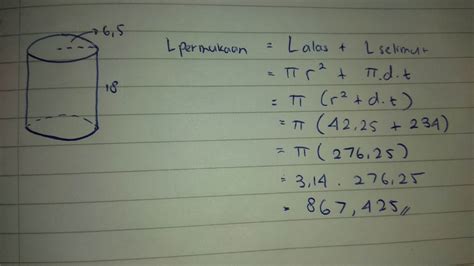 6,5
18
L permukaan = L alas + L selimut
= π r² + π.d.t
= π (r² + d.t)
= π (42,25 + 234)
= π (276,25)
= 3,14 . 276,25
= 867,425 //